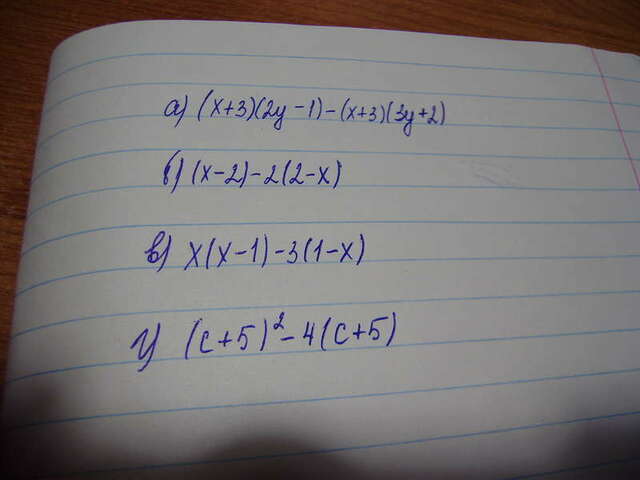 а) (x+3)(2y-1)-(x+3)(3y+2)
б) (x-2)-2(2-x)
в) x(x-1)-3(1-x)
г) (c+5)²-4(c+5)